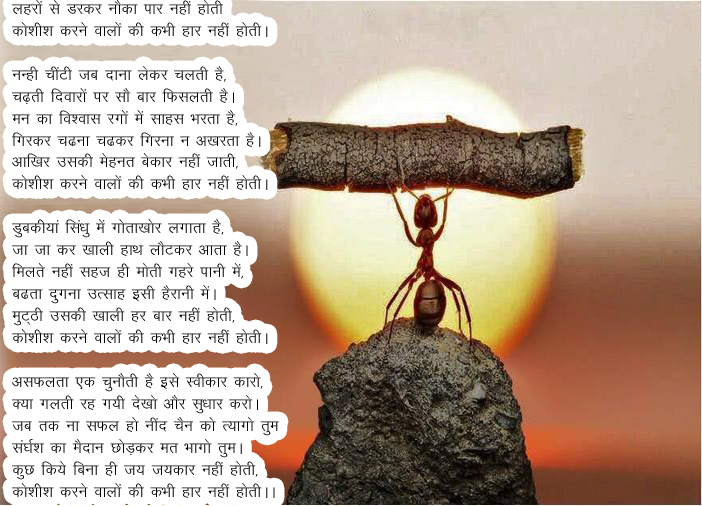 लहरों से डरकर नौका पार नहीं होती
कोशीश करने वालों की कभी हार नहीं होती।
नन्ही चींटी जब दाना लेकर चलती है,
चढ़ती दिवारों पर सौ बार फिसलती है।
मन का विश्वास रगों में साहस भरता है,
गिरकर चढना चढकर गिरना न अखरता है।
आखिर उसकी मेहनत बेकार नहीं जाती,
कोशीश करने वालों की कभी हार नहीं होती।
डुबकीयां सिंधु में गोताखोर लगाता है,
जा जा कर खाली हाथ लौटकर आता है।
मिलते नहीं सहज ही मोती गहरे पानी में,
बढता दुगना उत्साह इसी हैरानी में।
मुट्ठी उसकी खाली हर बार नहीं होती,
कोशीश करने वालों की कभी हार नहीं होती।
असफलता एक चुनौती है इसे स्वीकार कारो,
क्या गलती रह गयी देखो और सुधार करो।
जब तक ना सफल हो नींद चैन को त्यागो तुम
संर्घश का मैदान छोड़कर मत भागो तुम।
कुछ किये बिना ही जय जयकार नहीं होती,
कोशीश करने वालों की कभी हार नहीं होती।।